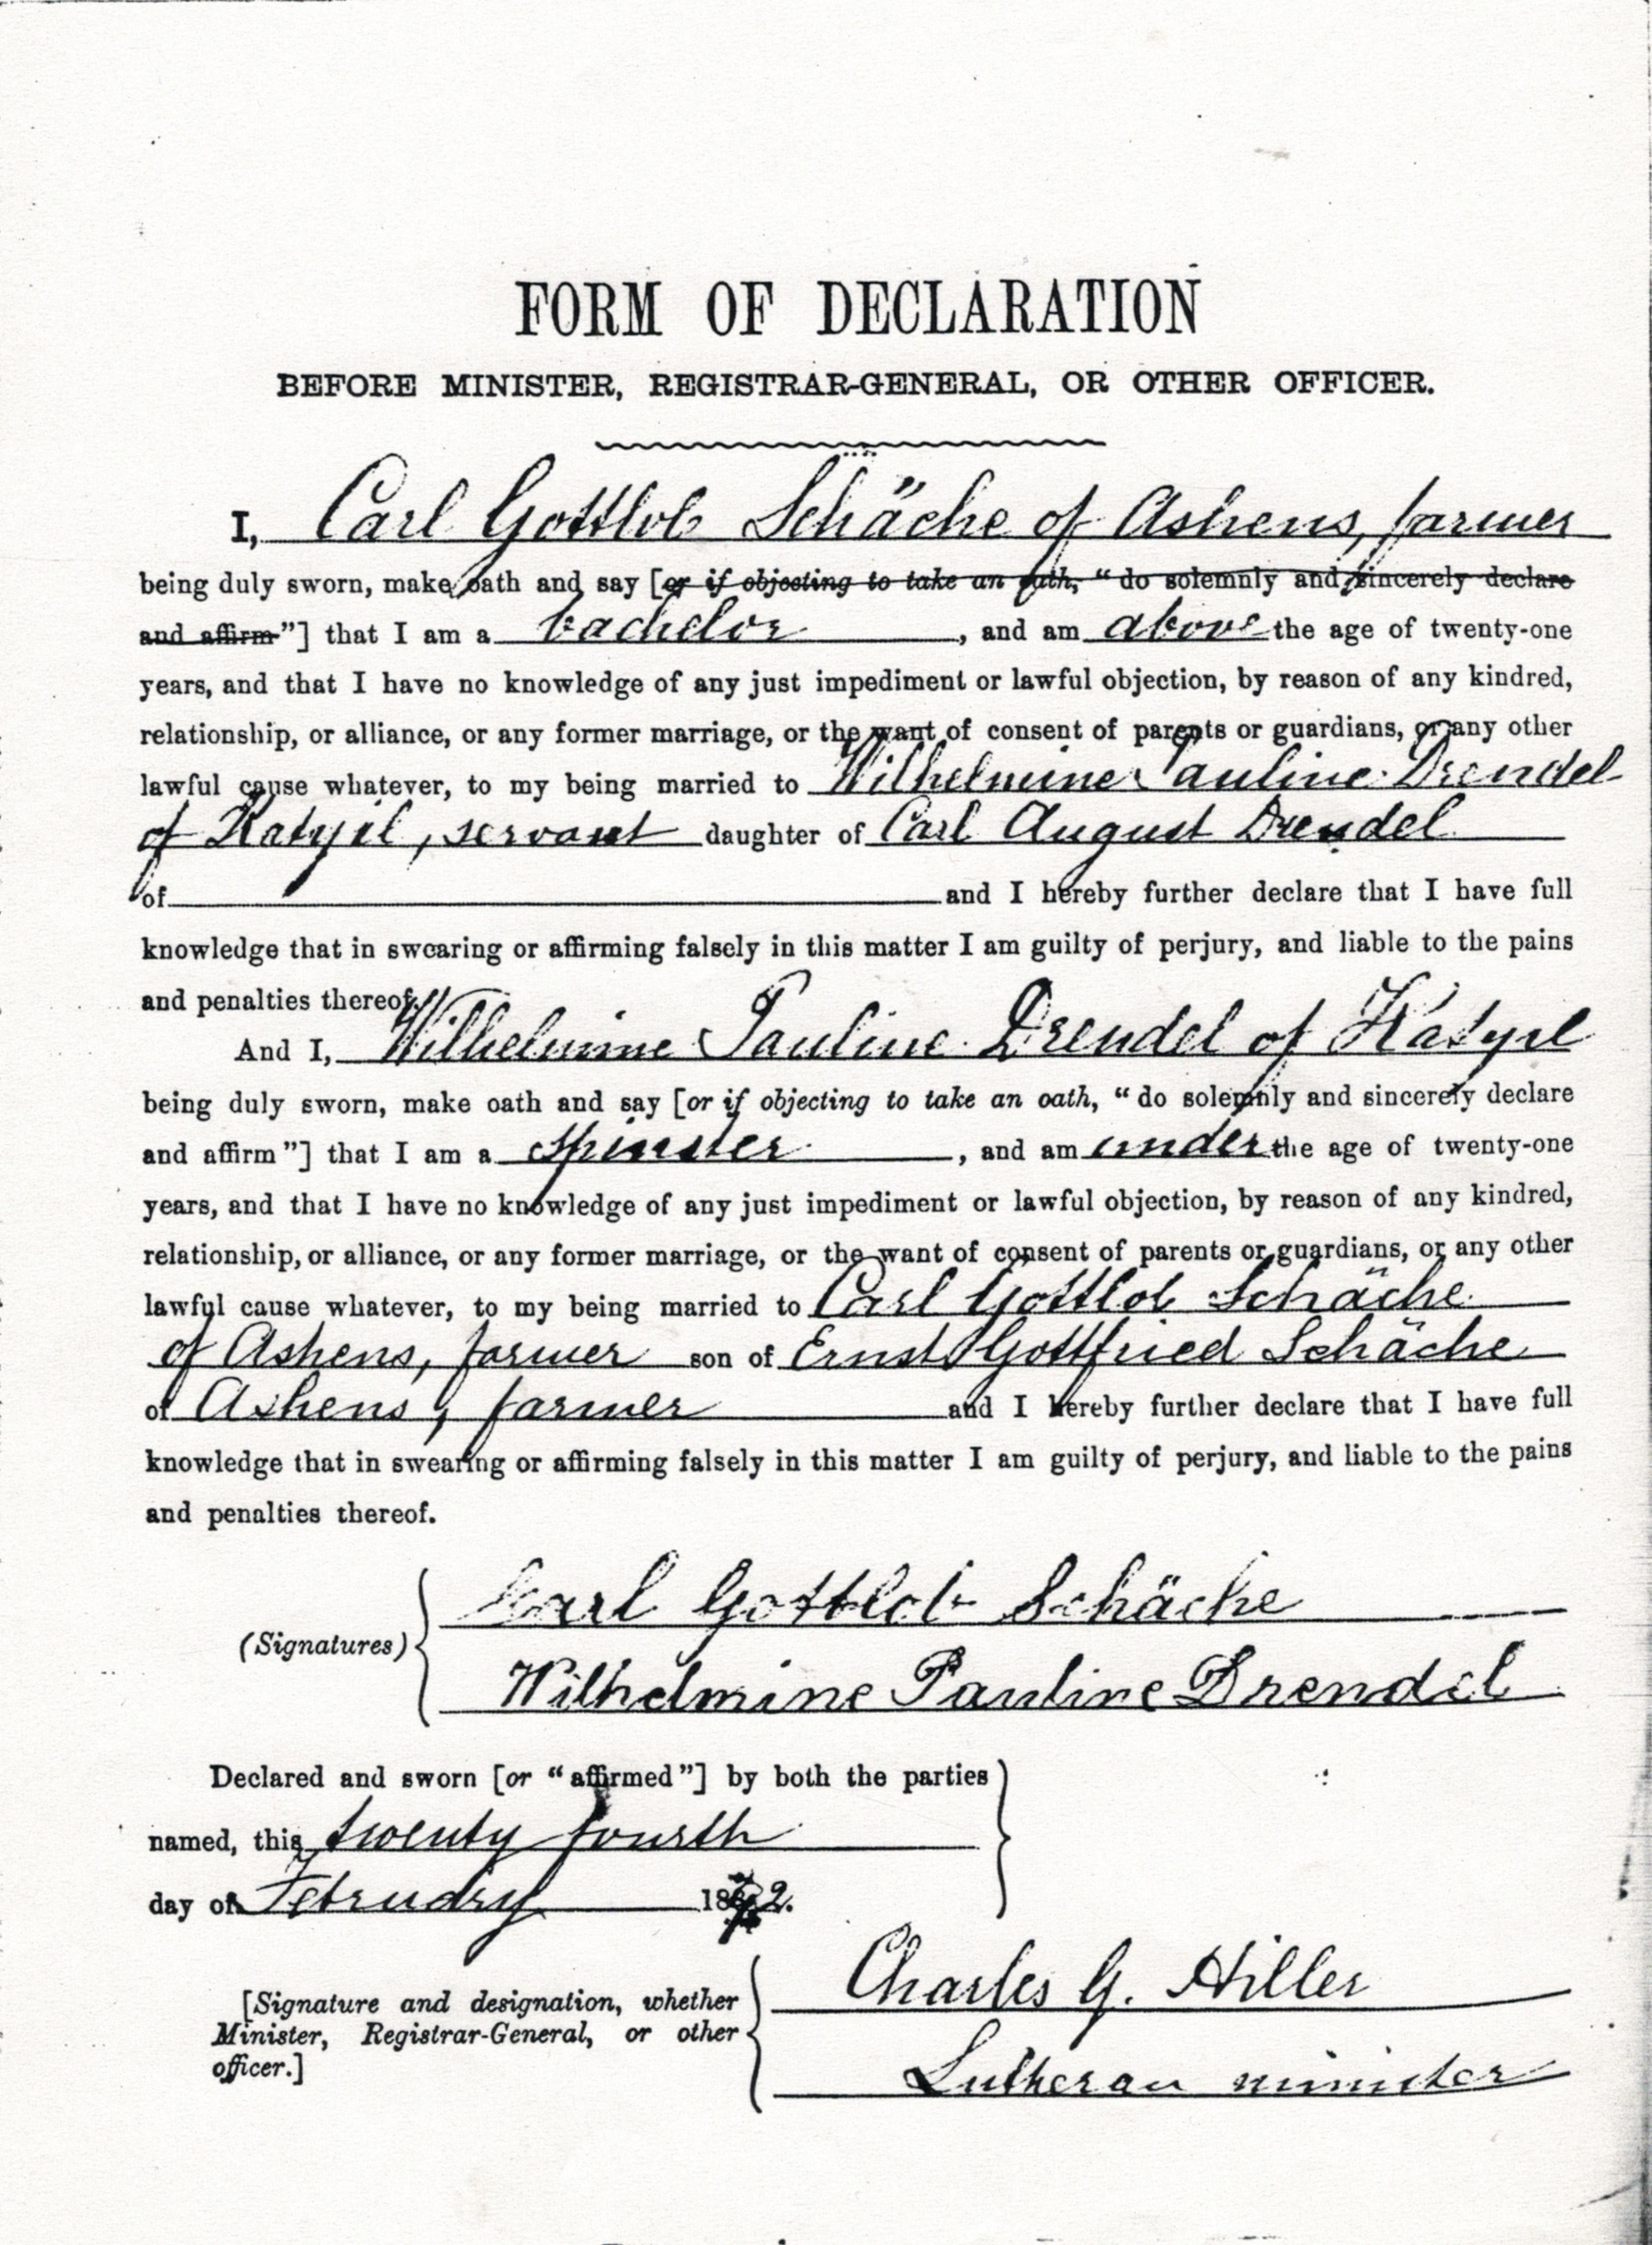 FORM OF DECLARATION
BEFORE MINISTER, REGISTRAR-GENERAL, OR OTHER OFFICER.
I, Carl Gottlob Schäche of Ashens, farmer
being duly sworn, make oath and say [or if objecting to take an oath, “do solemnly and sincerely declare
and affirm”] that I am a bachelor, and am above the age of twenty-one
years, and that I have no knowledge of any just impediment or lawful objection, by reason of any kindred,
relationship, or alliance, or any former marriage, or the want of consent of parents or guardians, or any other
lawful cause whatever, to my being married to Wilhelmine Pauline Drendel
of Katyil, servant daughter of Carl August Drendel
of and I hereby further declare that I have full
knowledge that in swearing or affirming falsely in this matter I am guilty of perjury, and liable to the pains
and penalties thereof.
And I, Wilhelmine Pauline Drendel of Katyil
being duly sworn, make oath and say [or if objecting to take an oath, “do solemnly and sincerely declare
and affirm”] that I am a spinster, and am under the age of twenty-one
years, and that I have no knowledge of any just impediment or lawful objection, by reason of any kindred,
relationship, or alliance, or any former marriage, or the want of consent of parents or guardians, or any other
lawful cause whatever, to my being married to Carl Gottlob Schäche
of Ashens, farmer son of Ernst Gottfried Schäche
of Ashens, farmer and I hereby further declare that I have full
knowledge that in swearing or affirming falsely in this matter I am guilty of perjury, and liable to the pains
and penalties thereof.
Karl Gottlob Schäche
(Signatures)
Wilhelmine Pauline Drendel
Declared and sworn [or “affirmed”] by both the parties
named, this twenty fourth
day of February
Charles G. Hiller
[Signature and designation, whether
Minister, Registrar-General, or other
officer.]
Lutheran minister